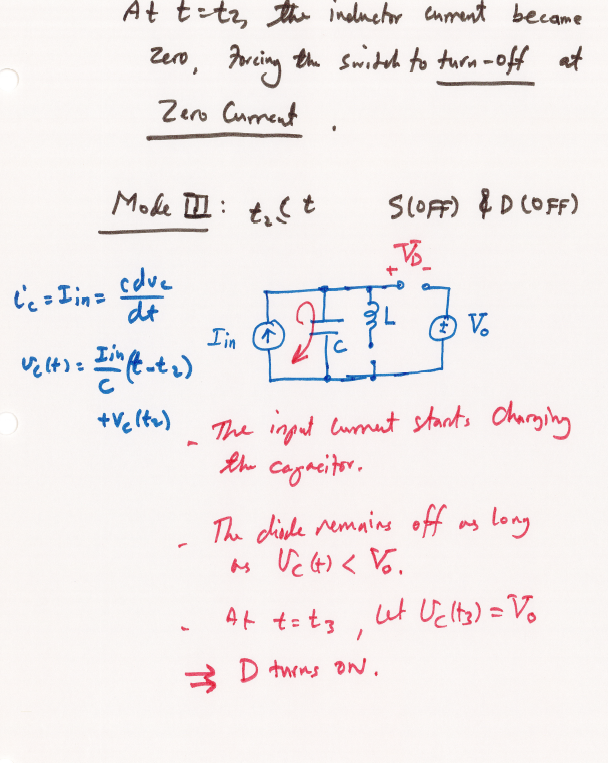 At t=t₂, the inductor current became
Zero, forcing the switch to turn-off at
Zero Current.
Mode III: t₂ < t S(OFF) & D(OFF)
+ V_D -
i_c = I_in = c dv_c / dt
v_c(t) = I_in / C (t - t₂)
+ v_c(t₂)
I_in C L V₀
- The input current starts charging
the capacitor.
- The diode remains off as long
as V_c(t) < V₀.
- At t = t₃, let V_c(t₃) = V₀
⇒ D turns ON.